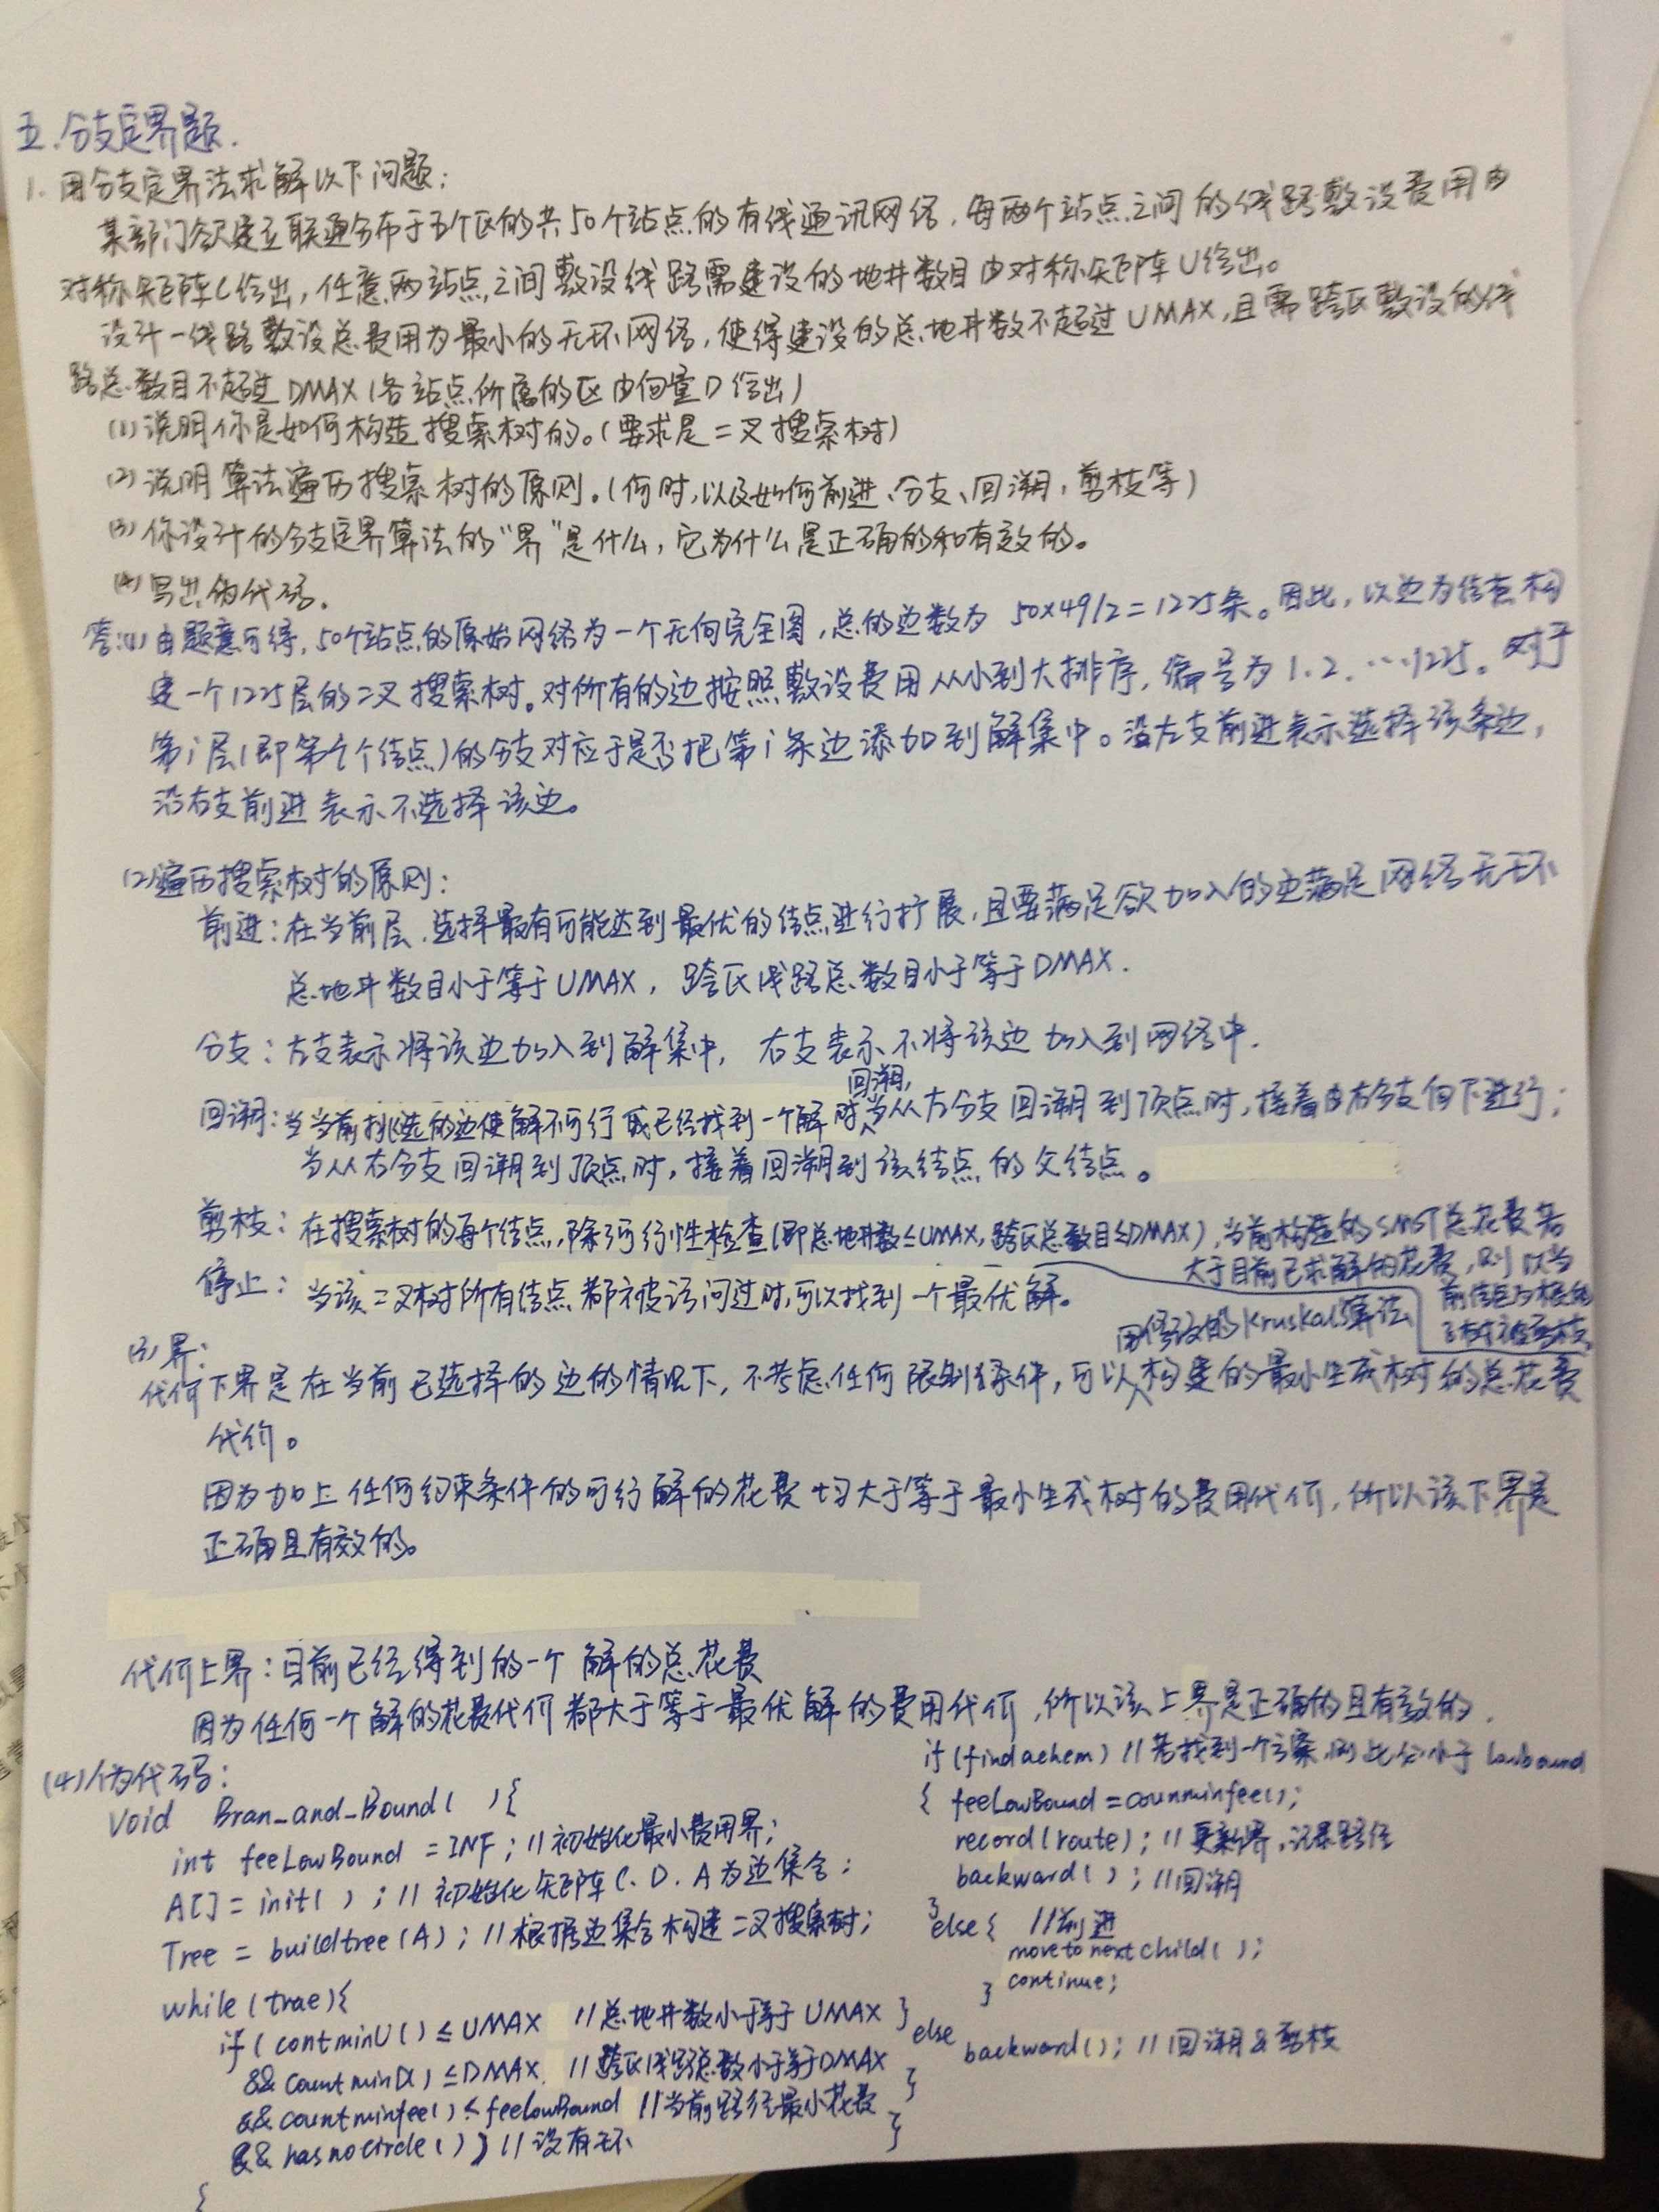 五.分支定界题.
1. 用分支定界法求解以下问题:
某部门欲建立联通分布于五个区的共50个站点的有线通讯网络,每两个站点之间的线路敷设费用由
对称矩阵C给出,任意两站点之间敷设线路需建设的地井数目由对称矩阵U给出。
设计一线路敷设总费用为最小的无环网络,使得建设的总地井数不超过UMAX,且需跨区敷设的线
路总数目不超过DMAX(各站点所属的区由向量D给出)
(1)说明你是如何构造搜索树的。(要求是二叉搜索树)
(2)说明算法遍历搜索树的原则。(何时,以及如何前进、分支、回溯,剪枝等)
(3)你设计的分支定界算法的“界”是什么,它为什么是正确的和有效的。
(4)写出伪代码。
答:(1)由题意可得,50个站点的原始网络为一个无向完全图,总的边数为 50×49/2=1225条。因此,以边为结点构
建一个1225层的二叉搜索树。对所有的边按照敷设费用从小到大排序,编号为1.2.…1225。对于
第i层(即第i个结点)的分支对应于是否把第i条边添加到解集中。沿左支前进表示选择该条边,
沿右支前进表示不选择该边。
(2)遍历搜索树的原则:
前进:在当前层,选择最有可能达到最优的结点进行扩展,且要满足欲加入的边满足网络无环
总地井数目小于等于UMAX,跨区线路总数目小于等于DMAX.
分支:左支表示将该边加入到解集中,右支表示不将该边加入到网络中.
回溯:当当前挑选的边使解不可行或已经找到一个解时回溯,当从左分支回溯到顶点时,接着由右分支向下进行;
当从右分支回溯到顶点时,接着回溯到该结点的父结点。
剪枝:在搜索树的每个结点,除可行性检查(即总地井数≤UMAX,跨区总数目≤DMAX),当前构造的SMST总花费若
大于目前已求解的花费,则以当
前结点为根的
子树被剪枝.
停止:当该二叉树所有结点都被访问过时,可以找到一个最优解。
(3)界:
代价下界是在当前已选择的边的情况下,不考虑任何限制条件,可以用修改的Kruskal算法构建的最小生成树的总花费
代价。
因为加上任何约束条件的可行解的花费均大于等于最小生成树的费用代价,所以该下界是
正确且有效的。
代价上界:目前已经得到的一个解的总花费
因为任何一个解的花费代价都大于等于最优解的费用代价,所以该上界是正确的且有效的.
(4)伪代码:
Void Bran_and_Bound( ){
int feeLowBound = INF; //初始化最小费用界;
A[]= init( ) ; //初始化矩阵C.D.A为边集合;
Tree = buildtree(A); //根据边集合构建二叉搜索树;
while(true){
if( contminU()≤UMAX //总地井数小于等于UMAX
&& countminD()≤DMAX. //跨区线路总数小于等于DMAX
&& countminfee()≤feeLowBound //当前路径最小花费
&& hasnocircle()) //没有环
{
if(findachem) //若找到一个方案,则比公小于
{ feeLowBound=counminfee();
record(route); //更新界,记录路径
backward( ); //回溯
}
else{ //前进
move to next child( );
continue;
}
} else
backward(); //回溯&剪枝
}
}